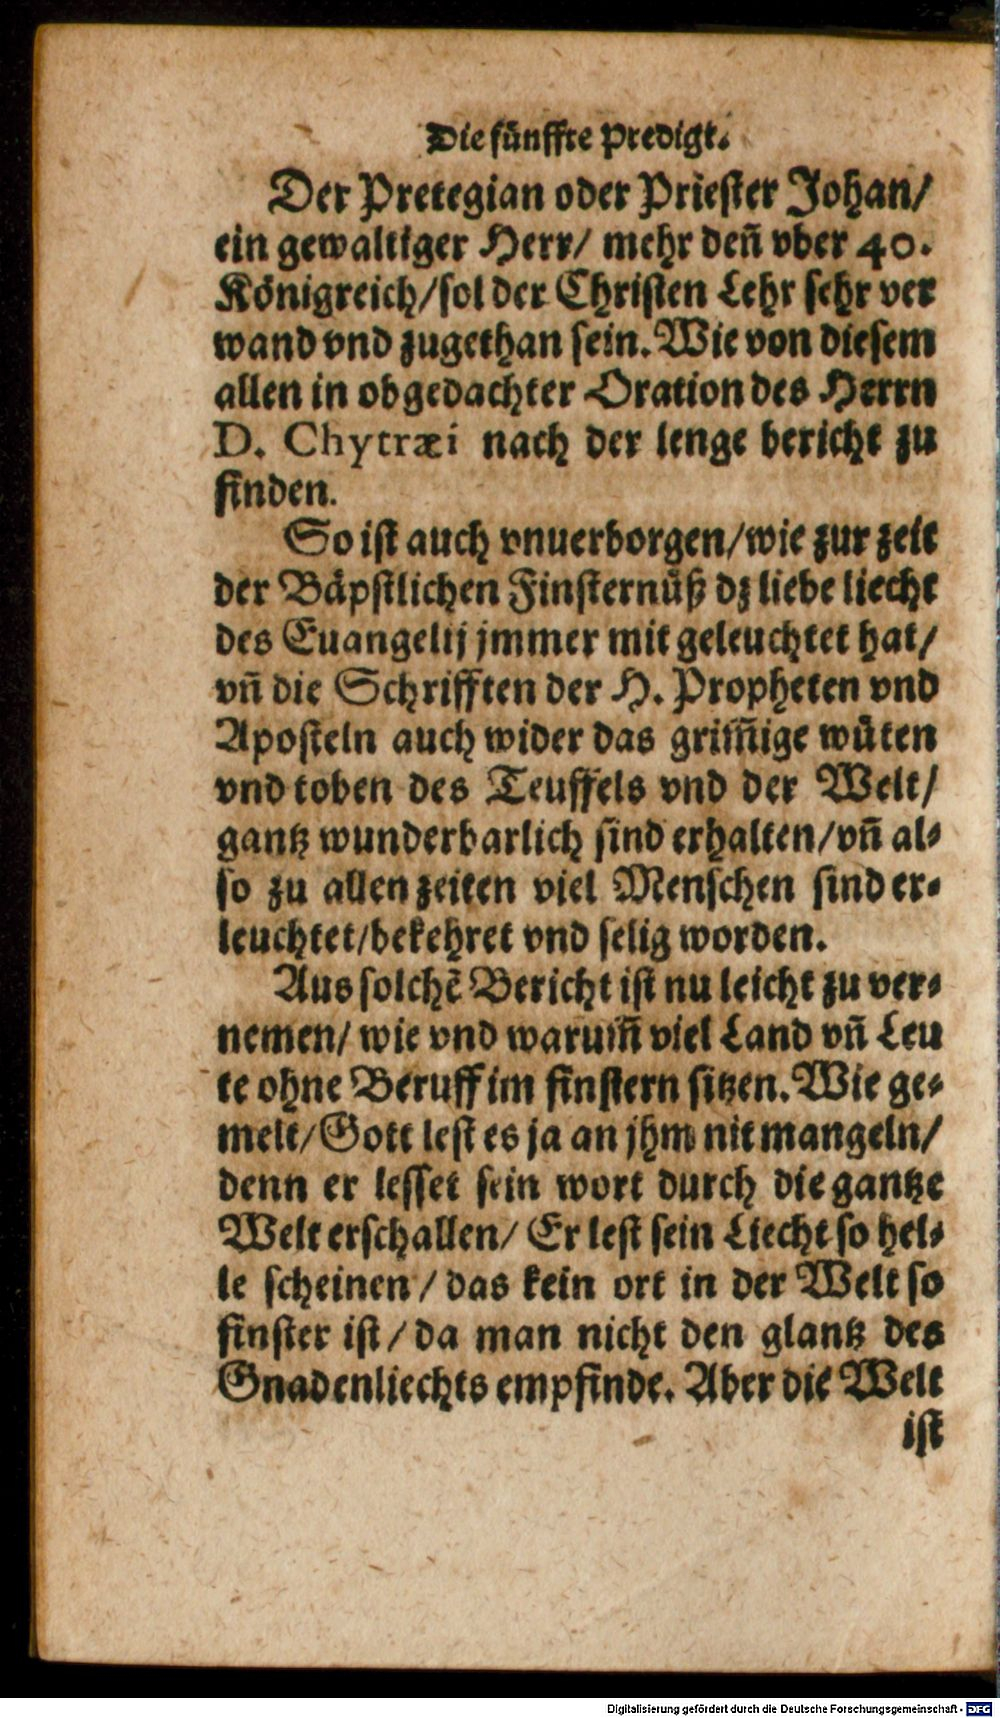 Die fünffte Predigt.
Der Pretegian oder Priester Johan/
ein gewaltiger Herr/ mehr deñ vber 40.
Königreich/sol der Christen Lehr sehr ver
wand vnd zugethan sein. Wie von diesem
allen in obgedachter Oration des Herrn
D. Chytræi nach der lenge bericht zu
finden.
So ist auch vnuerborgen/wie zur zeit
der Bäpstlichen Finsternüß dz liebe liecht
des Euangelij jmmer mit geleuchtet hat/
vñ die Schrifften der H. Propheten vnd
Aposteln auch wider das grim̃ige wüten
vnd toben des Teuffels vnd der Welt/
gantz wunderbarlich sind erhalten/vñ al-
so zu allen zeiten viel Menschen sind er-
leuchtet/bekehret vnd selig worden.
Aus solchẽ Bericht ist nu leicht zu ver-
nemen/ wie vnd warum̃ viel Land vñ Leu
te ohne Beruff im finstern sitzen. Wie ge-
melt/Gott lest es ja an jhm nit mangeln/
denn er lesset sein wort durch die gantze
Welt erschallen/ Er lest sein Liecht so hel-
le scheinen / das kein ort in der Welt so
finster ist / da man nicht den glantz des
Gnadenliechts empfinde. Aber die Welt
ist
Digitalisierung gefördert durch die Deutsche Forschungsgemeinschaft - DFG